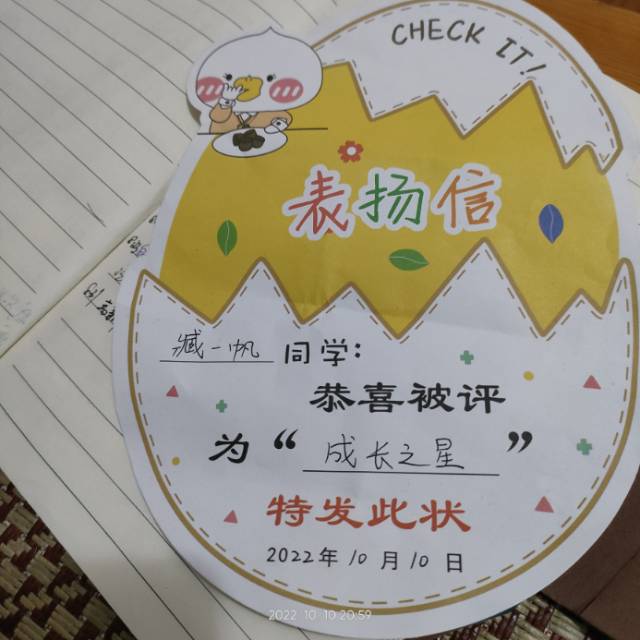 CHECK IT!
表扬信
臧一帆 同学:
恭喜被评
为“成长之星”
特发此状
2022年10月10日
2022 10 10 20:59